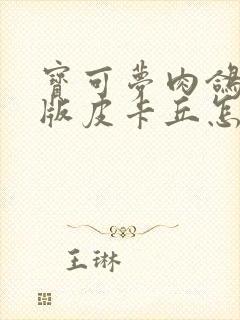 寶可夢肉鴿
版皮卡丘怎
王琳